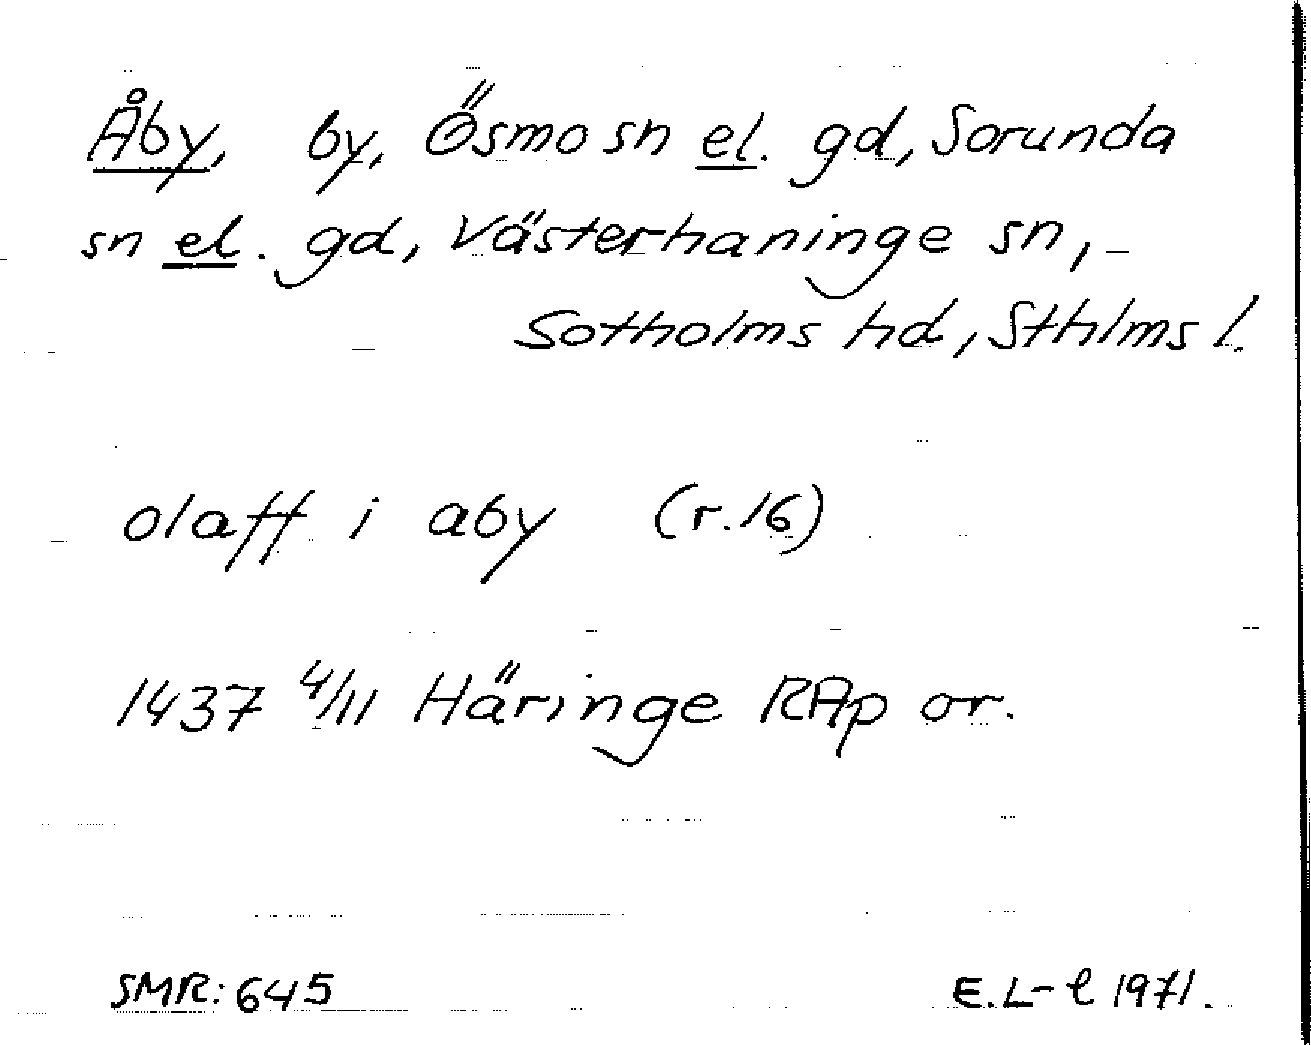 Åby, by, Ösmo sn el. gd, Sorunda
sn el. gd, Västerhaninge sn,
Sotholms hd, Sthlms l.
olaff i aby (r.16)
1437 4/11 Häringe RAp or.
SMR: 645 E.L-l 1971.